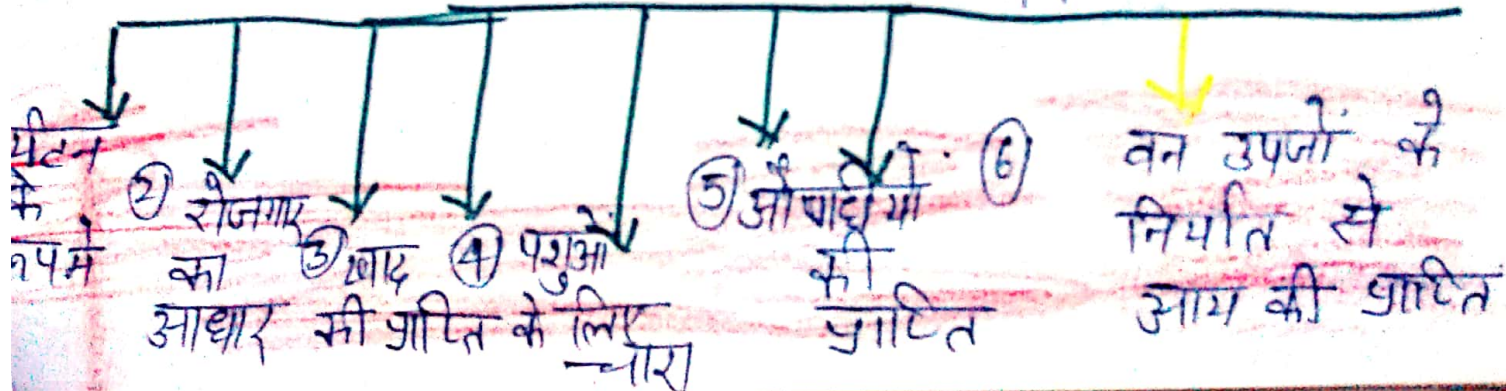 र्यटन
के
रूप में
② रोजगार
का
आधार
③ खाद
की प्राप्ति
④ पशुओं
के लिए
चारा
⑤ औषधियों
की
प्राप्ति
⑥ वन उपजों के
निर्यात से
आय की प्राप्ति